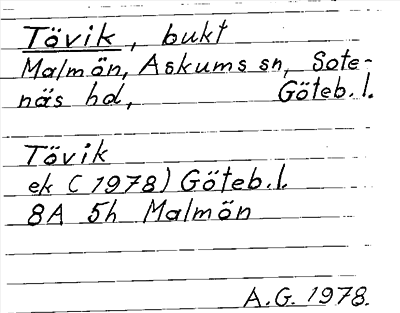 Tövik, bukt
Malmön, Askums sn, Sote-
näs hd, Göteb. l.
Tövik
ek (1978) Göteb. l.
8A 5h Malmön
A.G. 1978.